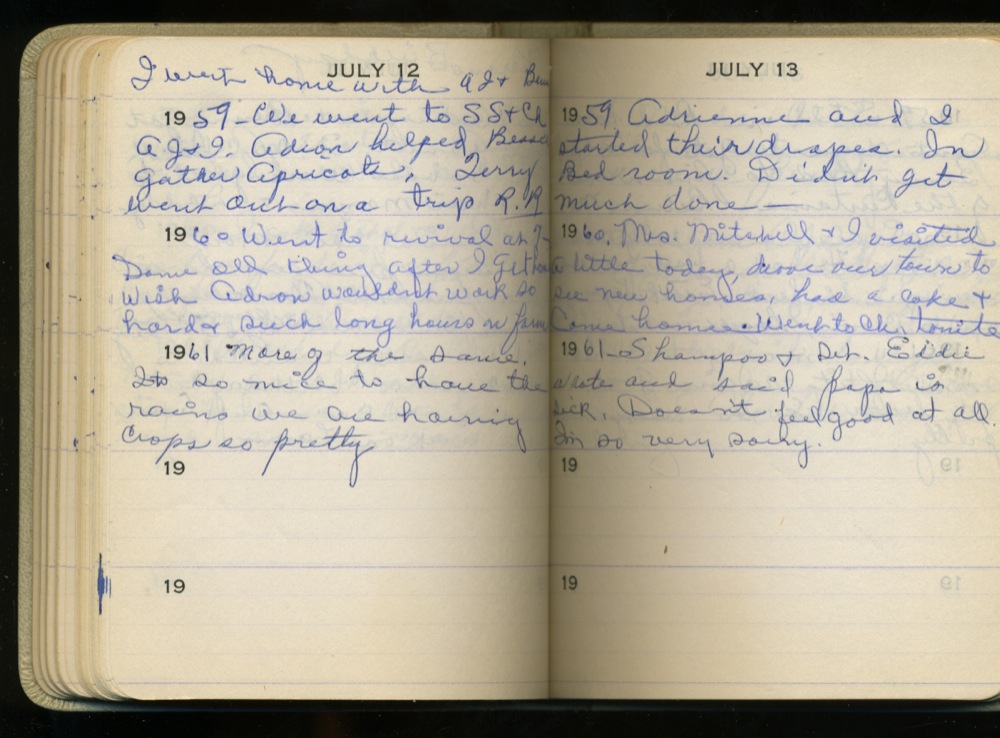 JULY 12
I went home with A J +
1959 - We went to SS + Ch
A J + I. Adron helped
Gather Apricots, Terry
went out on a trip R.R
1960 Went to revival at
Same old thing after I get
Wish Adron wouldn't work so
hard & such long hours on farm
1961 More of the same.
Its so nice to have the
rains we are having
Crops so pretty
19
19
JULY 13
1959 Adrienne and I
started their drapes. In
Bed room. Didn't get
much done —
1960. Mrs. Mitchell & I visited
a little today, drove over town to
see new homes, had a coke &
Came home. Went to Ch. tonite
1961 - Shampoo & Set. Eddie
wrote and said papa is
sick. Doesn't feel good at all.
Im so very sorry.
19
19